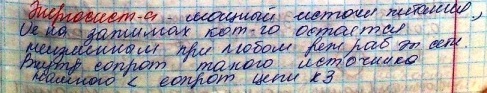 Энергосист-а - мощный источн питания,
Uе на зажимах кот-го остаётся
неизменным при любом реж раб эл сети.
Внутр сопрот такого источника
намного < сопрот цепи кЗ